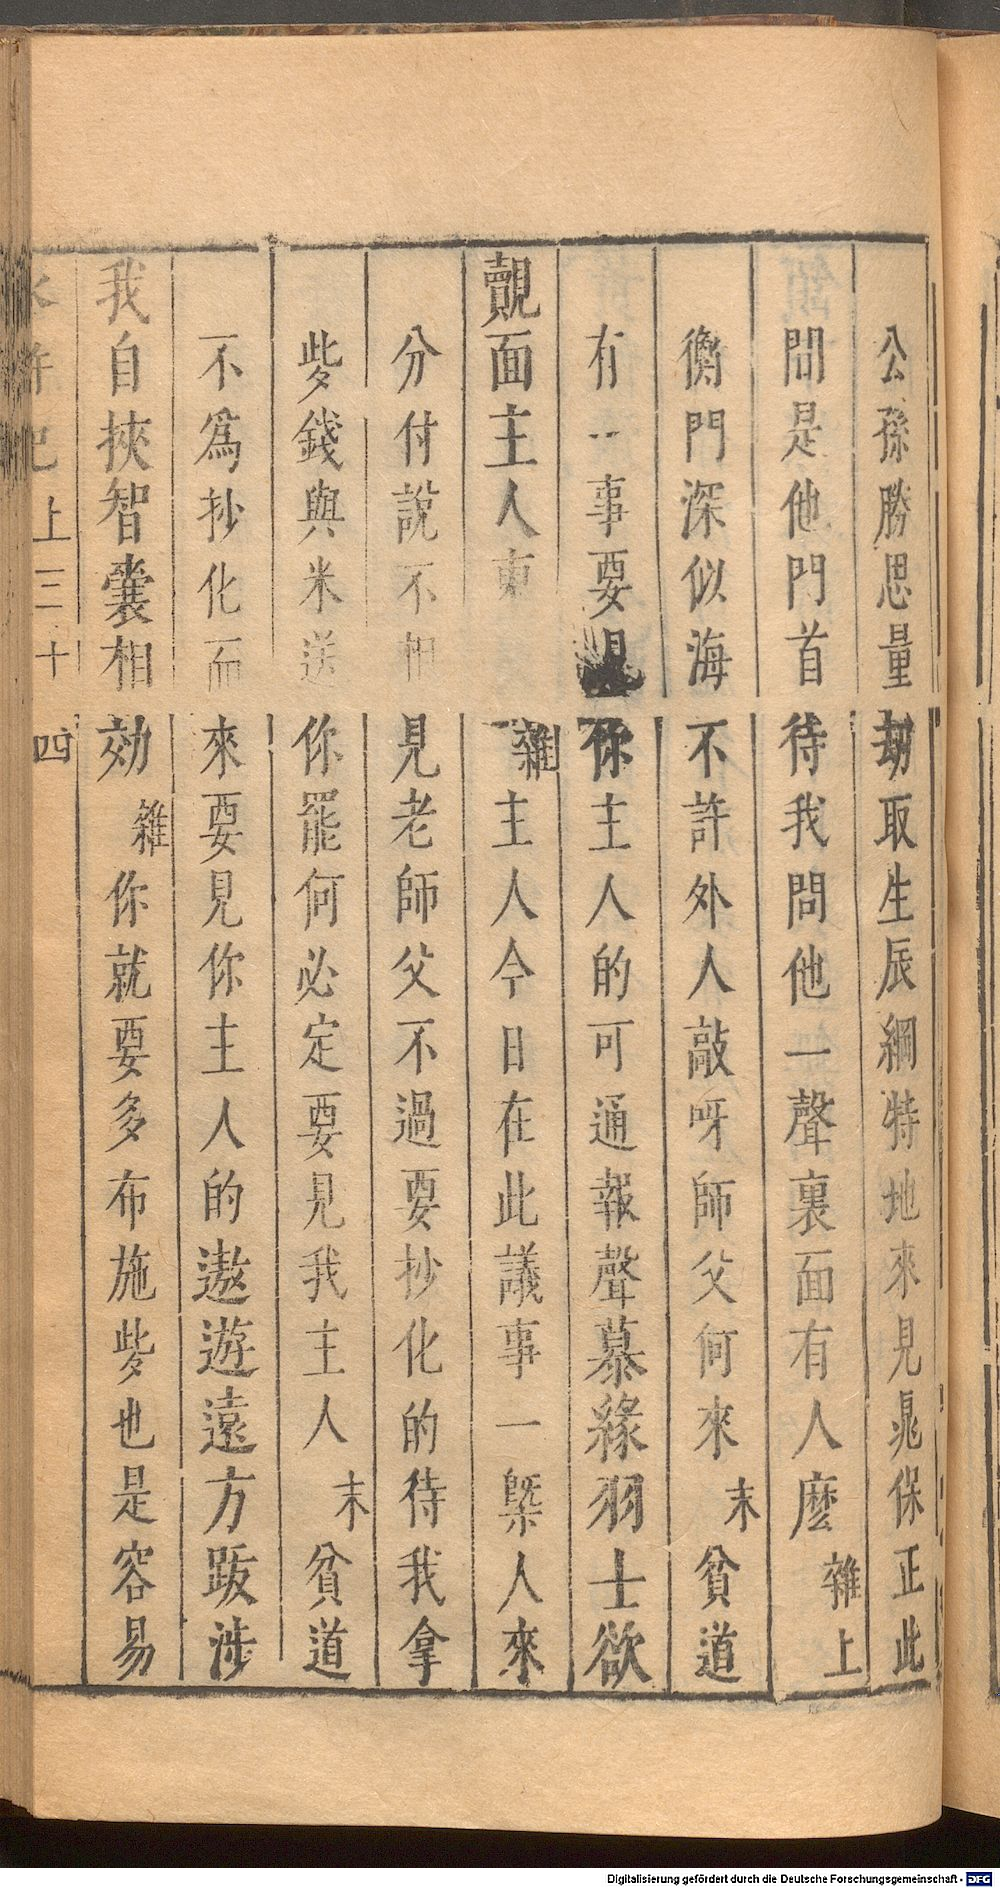 公孫勝思量劫取生辰綱特地來見晁保正此
問是他門首待我問他一聲裏面有人麽雜上
衡門深似海不許外人敲呀師父何來末貧道
有一事要見你主人的可通報聲慕緣羽士欲
覿面主人東雜主人今日在此議事一槩人來
分付說不相見老師父不過要抄化的待我拿
些錢與米送你罷何必定要見我主人末貧道
不爲抄化而來要見你主人的遨遊遠方跋涉
我自挾智囊相効雜你就要多布施些也是容易
水滸記上三十四
Digitalisierung gefördert durch die Deutsche Forschungsgemeinschaft - DFG